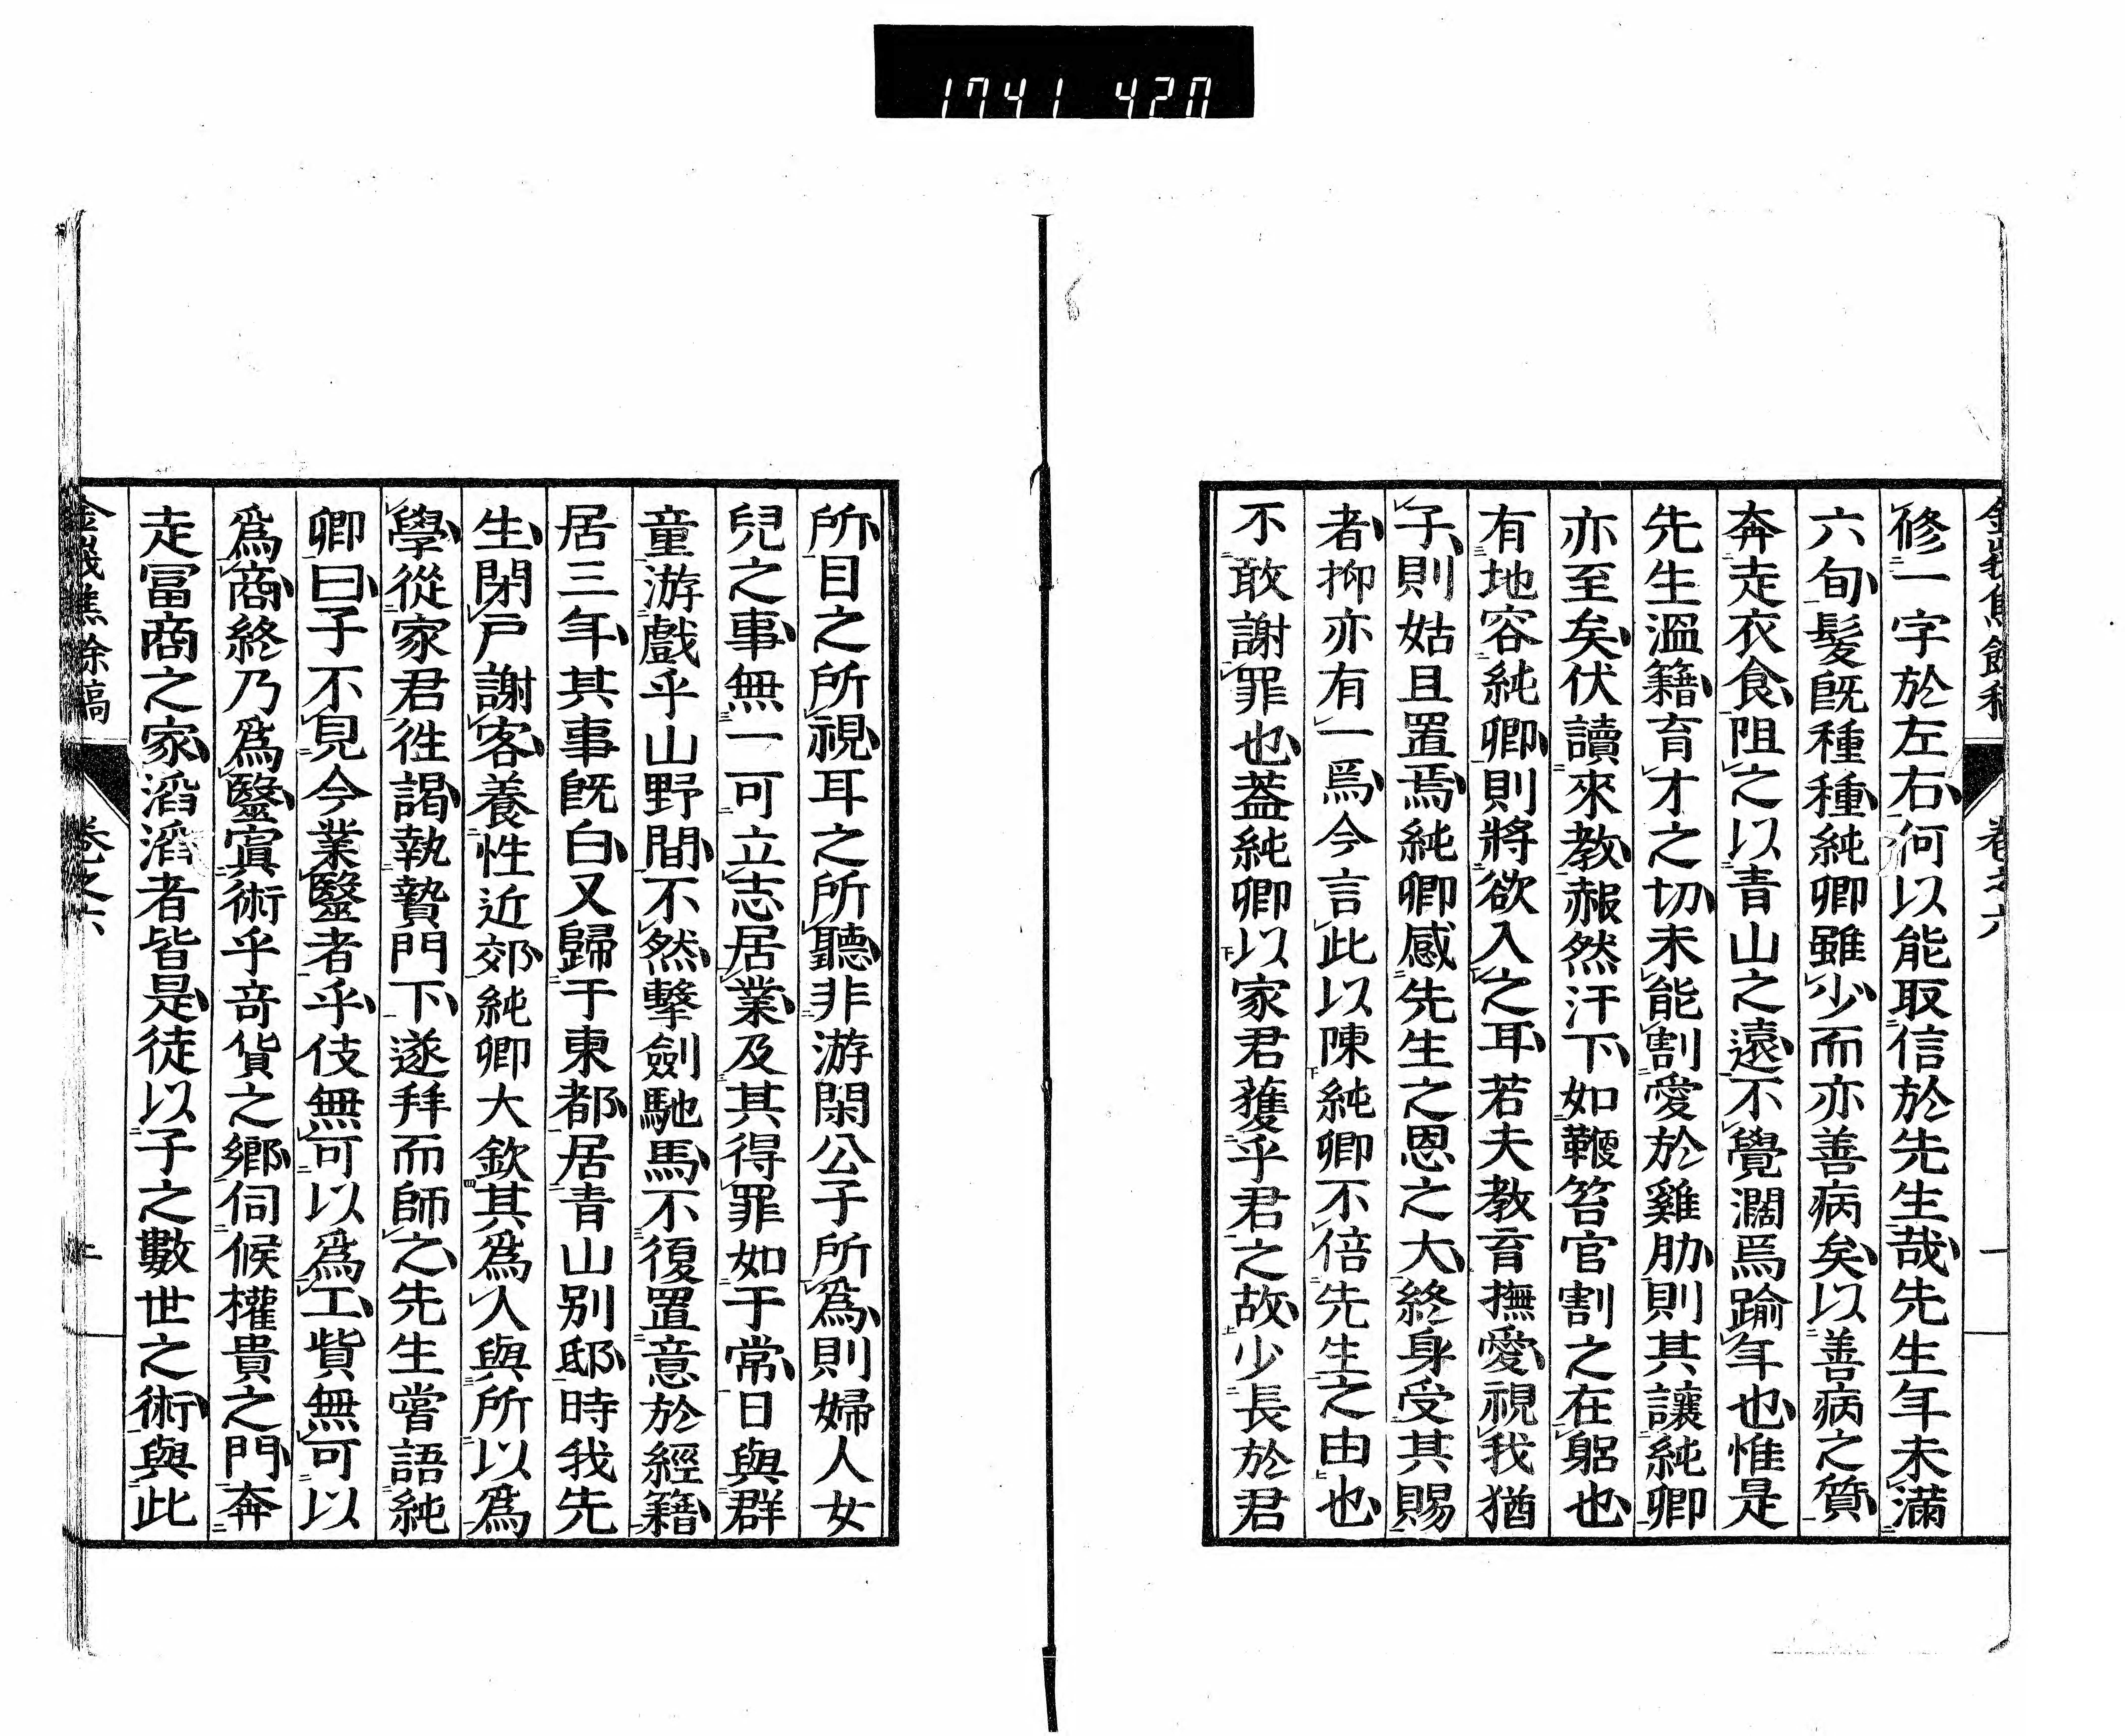 1741 420
修一字於左右何以能取信於先生哉先生年未滿
六旬髮既種種純卿雖少而亦善病矣以善病之質
奔走衣食阻之以青山之遠不覺濶焉踰年也惟是
先生溫籍育才之切未能割愛於雞肋則其讓純卿
亦至矣伏讀來教赧然汗下如鞭笞官割之在躳也
有地容純卿則將欲入之耳若夫教育撫愛視我猶
子則姑且置焉純卿感先生之恩之大終身受其賜
者抑亦有一焉今言此以陳純卿不倍先生之由也
不敢謝罪也蓋純卿以家君獲乎君之故少長於君
所目之所視耳之所聽非游閑公子所爲則婦人女
兒之事無一可立志居業及其得罪如于常日與群
童游戲乎山野間不然擊劍馳馬不復置意於經籍
居三年其事既白又歸于東都居青山別邸時我先
生閉戶謝客養性近郊純卿大欽其爲人與所以爲
學從家君徃謁執贄門下遂拜而師之先生嘗語純
卿曰子不見今業醫者乎伎無可以爲工貲無可以
爲商終乃爲醫寘術乎奇貨之鄉伺候權貴之門奔
走冨商之家滔滔者皆是徒以子之數世之術與此
卷之六